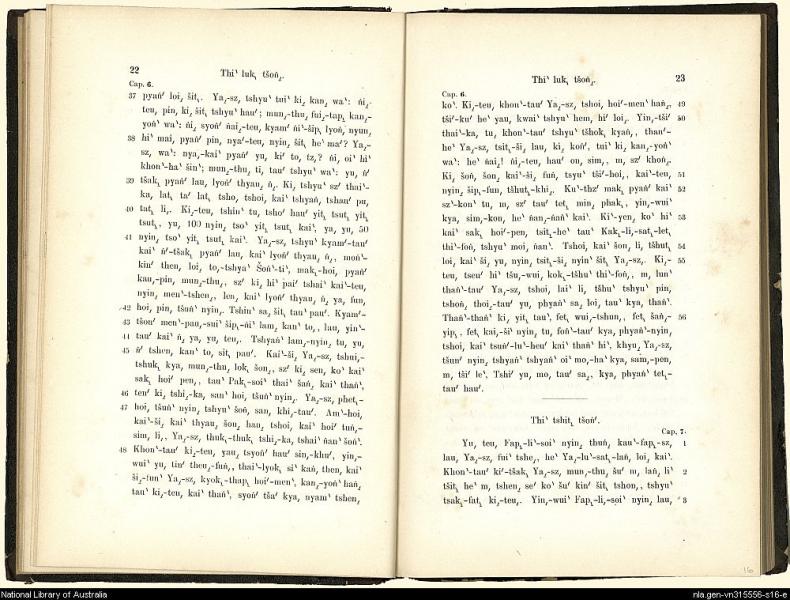 22
Thiˋ luk˛ tšoṅ˛.
Cap. 6.
37 pyaṅˊ loi˛ šit˛. Ya˛-sz, tshyuˋ tuiˋ ki˛ kan˛ waˋ: ṅi˛
teu, pin, ki˛ šit˛ tshyuˋ hauˊ; mun˛-thu˛ fui˛-tap˛ kan˛-
yoṅˋ waˋ: ṅi˛ syoṅˊ ṅai˛-teu, kyamˊ ṅiˋ-šip˛ lyoṅ˛ nyun˛
38 hiˋ mai, pyaṅˊ pin, nyaˊ-teu, nyin˛ šit˛ heˋ maˊ? Ya˛-
sz, waˋ: nya˛-kaiˋ pyaṅˊ yu, kiˊ to, tz˛? ṅi, oiˋ hiˋ
khonˋ-haˋ šinˋ; mun˛-thu˛ ti, tauˊ tshyuˋ wa: yu, ṅˊ
39 tšak˛ pyaṅˊ lau, lyoṅˊ thyau˛ ṅ˛. Ki˛ tshyuˋ szˊ thaiˋ-
ka, lat˛ taˊ lat˛ tsho, tshoi, kaiˋ tshyaṅ, tshauˊ pu,
40 tat˛ li˛. Ki˛-teu, tshinˋ tu, tshoˊ hauˊ yit˛ tsut˛ yit˛
tsut˛, yu, 100 nyin, tsoˋ yit˛ tsut˛ kaiˋ, ya, yu, 50
41 nyin, tsoˋ yit˛ tsut˛ kaiˋ. Ya˛-sz, tshyuˋ kyamˊ-tauˊ
kaiˋ ṅˊ-tšak˛ pyaṅˊ lau, kaiˋ lyoṅˊ thyau˛ ṅ˛, moṅˋ-
kinˊ then, loi˛ to˛-tshya Šoṅˋ-ti˛, mak˛-hoi˛ pyaṅˊ
kau˛-pin, mun˛-thu˛, szˊ ki˛ hiˋ paiˊ tshaiˋ kaiˋ-teu,
nyin, menˋ-tshen˛, len, kaiˋ lyoṅˊ thyau, ṅ˛ ya, fun,
42 hoi, pin, tšuṅˋ nyin˛. Tshinˋ sa˛ šit˛ tauˋ pauˊ. Kyamˊ-
43 tšonˊ menˋ-pau˛-suiˋ šip˛-ṅiˋ lam˛ kanˋ to˛, lau, yinˋ-
44 tauˊ kaiˋ ṅ˛ ya, yu, teu˛. Tshyaṅˋ lam˛-nyin˛ tu, yu,
45 ṅˊ tshen, kanˋ to, sit˛ pauˊ. Kaiˋ-ši˛ Ya˛-sz, tshui˛-
tshuk˛ kya, mun˛-thu, lok˛ šon˛, szˊ ki˛ sen, koˋ kaiˋ
sak˛ hoiˊ pen,, tauˋ Pak˛-soiˋ thaiˋ šaṅ, kaiˋ thaṅˋ,
46 tenˊ ki˛ tshi˛-ka, sanˋ hoi, tšuṅˋ nyin˛. Ya˛-sz, phet˛-
47 hoi, tšuṅˋ nyin˛ tshyuˋ šoṅ, san, khi˛-tauˊ. Amˋ-hoi,
kaiˋ-ši˛ kaiˋ thyau, šon, hau, tshoi, kaiˋ hoiˊ tuṅ˛-
sim, li,, Ya˛-sz, thuk˛-thuk˛ tshi˛-ka, tshaiˋ ṅanˋ šoṅˋ.
48 Khonˋ-tauˊ ki˛-teu, yau, tsyoṅˊ hauˊ sin˛-khuˊ, yin˛-
wuiˋ yu, tinˊ theu˛-fuṅ˛, thai˛-lyok˛ siˋ kaṅ, then, kaiˋ
ši˛-funˋ Ya˛-sz, kyok˛-thap˛ hoiˊ-menˋ, kan˛-yoṅˋ haṅ˛
tauˋ ki˛-teu, kaiˋ thaṅˋ, syoṅˊ tšaˋ kya, nyam˛ tshen˛
Thiˋ luk˛ tšoṅ˛.
23
Cap. 6.
koˋ. Ki˛-teu, khonˋ-tauˊ Ya˛-sz, tshoi, hoiˊ-menˋ haṅ˛, 49
tšiˊ-kuˊ heˋ yau, kwaiˋ tshyuˋ hem, hiˊ loi˛. Yin˛-tšiˊ 50
thaiˋ-ka, tu, khonˋ-tauˊ tshyuˋ tšhok˛ kyaṅ˛, thanˊ-
heˋ Ya˛-sz, tsit˛-ši˛ lau, ki˛ koṅˊ, tuiˋ ki˛ kan˛-yoṅˋ
waˋ: heˋ ṅai˛! ṅi˛-teu, hauˊ on, sim,, m, szˊ khoṅ˛.
Ki˛ šoṅ, šon˛ kaiˋ-ši˛ fuṅ, tsyuˋ tšiˊ-hoi,, kaiˋ-teu, 51
nyin˛ šip˛-fun, tšhut˛-khi˛. Kuˋ-thzˊ mak˛ pyaṅˊ kaiˋ 52
szˋ-konˋ tu, m, szˊ tauˊ tet˛ min˛ phak˛, yin˛-wuiˋ
kya, sim˛-kon, heˋ ṅan˛-ṅaṅˋ kaiˋ. Kiˋ-yen, koˋ hiˋ 53
kaiˋ sak˛ hoiˊ-pen, tsit˛-heˋ tauˋ Kak˛-li˛-sat˛-let˛
thiˋ-foṅ, tshyuˋ moi, ṅanˋ. Tshoi, kaiˋ šon, li, tšhut˛ 54
loi, kaiˋ ši, yu, nyin, tsit˛-ši˛ nyinˋ šit˛ Ya˛-sz,. Ki˛- 55
teu, tseuˊ hiˋ tšu˛-wui˛ kok˛-tšhuˋ thiˋ-foṅ,, m, lunˋ
thaṅˋ-tauˊ Ya˛-sz, tshoi, laiˋ li, tšhuˋ tshyuˋ pin,
tshoṅ, thoi,-tauˊ yu, phyaṅˋ sa, loi, tauˋ kya, thaṅˋ.
Thaṅˋ-thaṅˋ ki, yit˛ tauˋ, fet˛ wui,-tshun,, fet˛ šaṅ˛- 56
yip˛, fet˛ kai,-šiˋ nyin, tu, foṅˋ-tauˊ kya, phyaṅˋ-nyin,
tshoi, kaiˋ tsuṅˊ-luˋ-heuˊ kaiˋ thaṅˋ hiˋ, khyu, Ya˛-sz,
tšunˊ nyin, tshyaṅˋ tshyaṅˋ oiˋ mo,-haˋ kya, sam,-pen,
m, tšiˊ leˋ. Tshiˊ yu, mo, tauˊ sa,, kya, phyaṅˋ tet˛-
tauˊ hauˊ.
Thiˋ tshit˛ tšoṅˊ.
Cap. 7.
Yu, teu, Fap˛-liˋ-soiˋ nyin, thuṅ, kauˋ-fap˛-sz, 1
lau, Ya˛-sz, fui˛ tshe,, heˋ Ya˛-luˋ-sat˛-laṅ, loi, kaiˋ.
Khonˋ-tauˊ kiˊ-tšak˛ Ya˛-sz, mun˛-thu, šuˊ m, laṅ, liˋ 2
tšit˛ heˋ m, tshen, seˊ koˋ šuˊ kinˊ šit˛ tshon,, tshyuˋ
tsak˛-fat˛ ki˛-teu,. Yin˛-wuiˋ Fap˛-li,-soi nyin, lau, 3
16
National Library of Australia
nla.gen-vn315556-s16-e